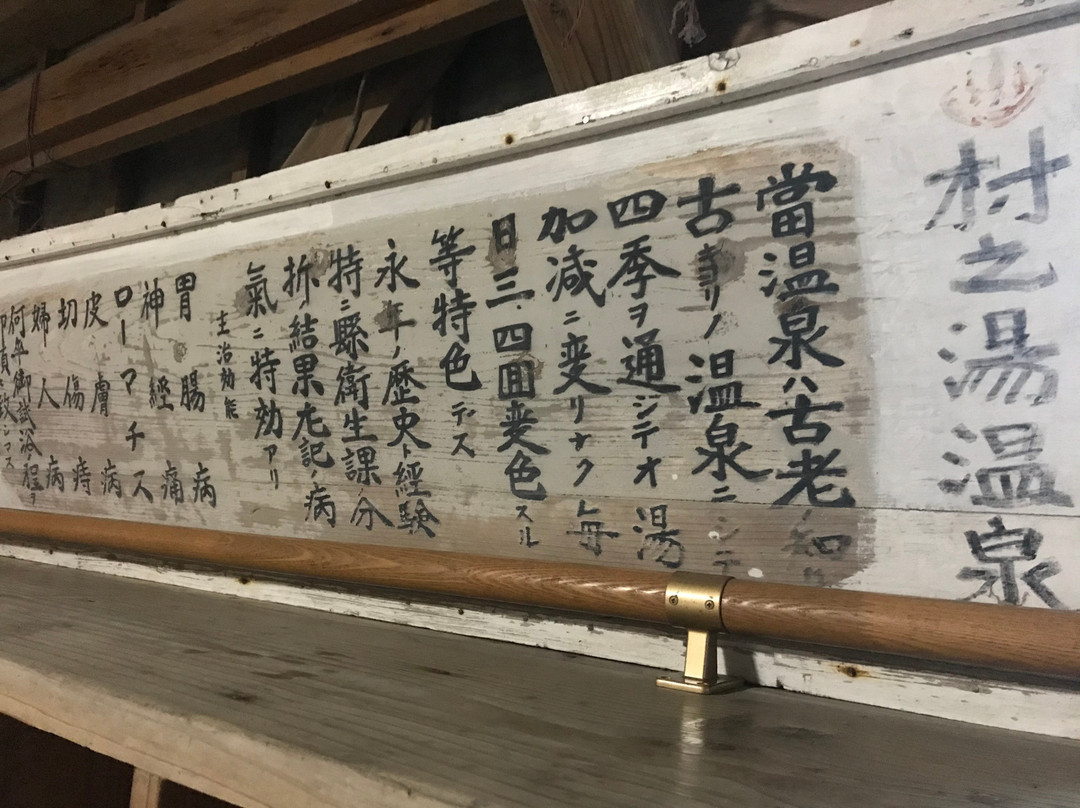 村之湯温泉
當温泉ハ古老
古ヨリノ温泉ニシテ
四季ヲ通ジテオ湯
加減ニ変リナク毎
日三、四回変色スル
等特色デス
永年ノ歴史ト経験
特ニ縣衛生課ノ分
折ノ結果尤記ノ病
氣ニ特効アリ
主治効能
胃腸病
神経痛
ローマチス
皮膚病
切傷痔
婦人病
何年御試浴程ヲ